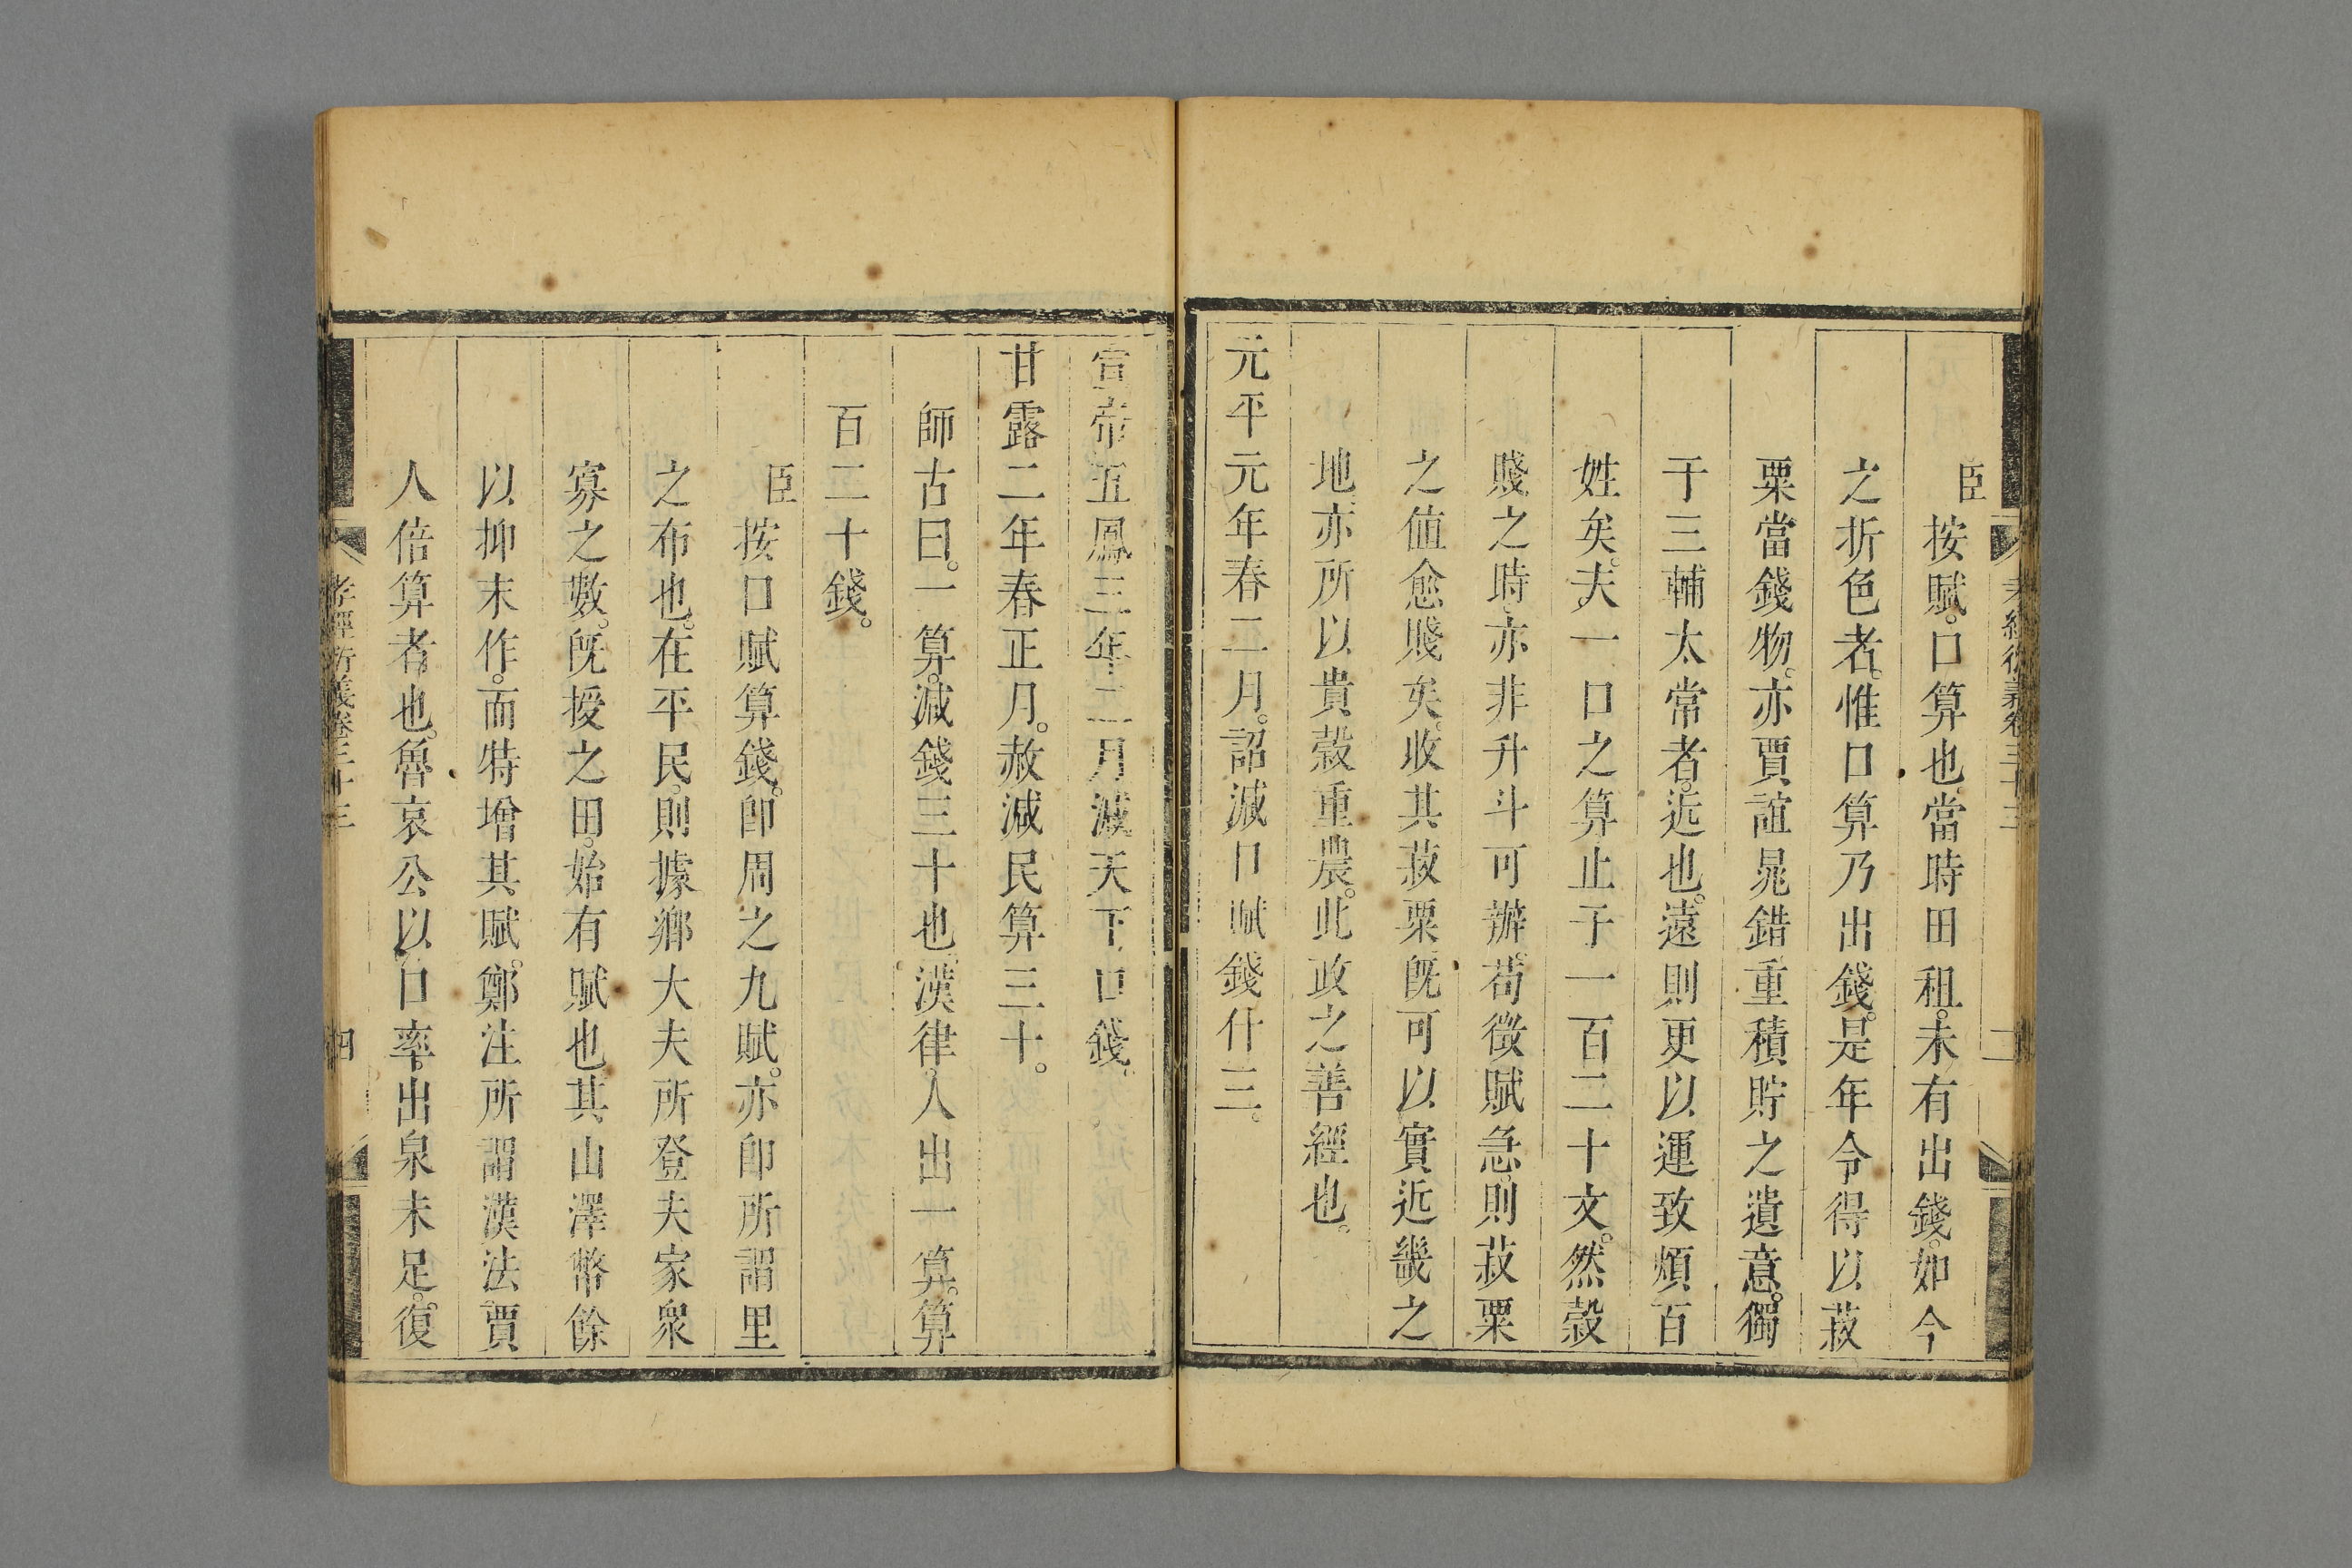 臣按賦。口算也。當時田租。未有出錢。如今
之折色者。惟口算乃出錢。是年令得以菽
粟當錢物。亦賈誼晁錯重積貯之遺意。獨
于三輔太常者。近也。遠則更以運致煩百
姓矣。夫一口之算止于一百二十文。然穀
賤之時。亦非升斗可辦。苟徵賦急。則菽粟
之値愈賤矣。收其菽粟旣可以實近畿之
地。亦所以貴穀重農。此政之善經也。
元平元年春二月。詔減口賦錢什三。
宣帝五鳳三年三月減天下口錢。
甘露二年春正月。赦減民算三十。
師古曰。一算。減錢三十也。漢律。人出一算。算
百二十錢。
臣按口賦算錢。卽周之九賦。亦卽所謂里
之布也。在平民。則據鄉大夫所登夫家衆
寡之數。旣授之田。始有賦也。其山澤幣餘
以抑末作。而特增其賦。鄭注所謂漢法。賈
人倍算者也。魯哀公以口率。出泉未足。復
孝經衍義卷三十三
四